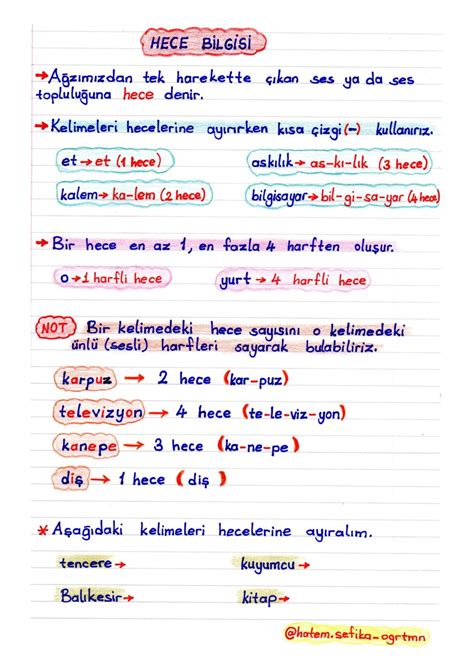 HECE BİLGİSİ
→Ağzımızdan tek harekette çıkan ses ya da ses
topluluğuna hece denir.
→Kelimeleri hecelerine ayırırken kısa çizgi(-) kullanırız.
et→et (1 hece) askılık→as-kı-lık (3 hece)
kalem→ka-lem (2 hece) bilgisayar→bil-gi-sa-yar (4 hece)
→Bir hece en az 1, en fazla 4 harften oluşur.
o→1 harfli hece yurt→4 harfli hece
NOT Bir kelimedeki hece sayısını o kelimedeki
ünlü (sesli) harfleri sayarak bulabiliriz.
karpuz → 2 hece (kar-puz)
televizyon → 4 hece (te-le-viz-yon)
kanepe → 3 hece (ka-ne-pe)
diş → 1 hece (diş)
*Aşağıdaki kelimeleri hecelerine ayıralım.
tencere→ kuyumcu→
Balıkesir→ kitap→
@hatem.sefika_ogrtmn